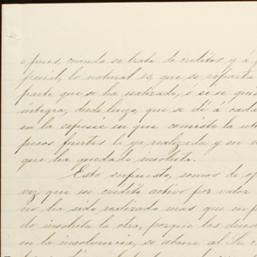 pues, cuando se trata de creditos y á p
lo natural es, que se reparta
parte que se ha realizado, ó si se quie
íntegra, desde luego, que se dé á cada
en la especie en que consiste la
pesos fuertes lo ya realizado y en
que ha quedado insoluta.
Esto supuesto, somos de op
vez que un credito activo por valor
no ha sido realizado mas que en p
do insoluta la otra, porque los deu
en la insolvencia, se abone al Sr.